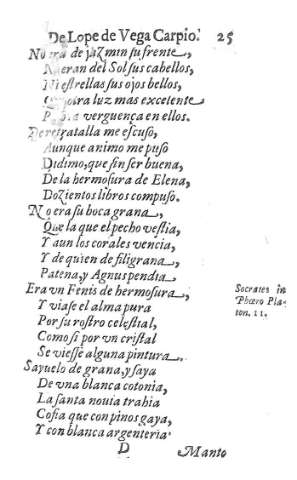 De Lope de Vega Carpio. 25
No era de jazmin su frente,
No eran del Sol sus cabellos,
Ni estrellas sus ojos bellos,
otra luz mas excelente
verguença en ellos.
retratalla me escuso,
Aunque animo me puso
Didimo, que sin ser buena,
De la hermosura de Elena,
Dozientos libros compuso.
No era su boca grana,
Que la que el pecho vestia,
Y aun los corales vencia,
Y de quien de filigrana,
Patena, y Agnus pendia
Era vn Fenis de hermosura,
Y viase el alma pura
Por su rostro celestial,
Como si por vn cristal
Se viesse alguna pintura.
Sayuelo de grana, y saya
De vna blanca cotonia,
La santa nouia trahia
Cofia que con pinos gaya,
Y con blanca argenteria
Socrates in
Phœro Pla-
ton. 11.
D Manto